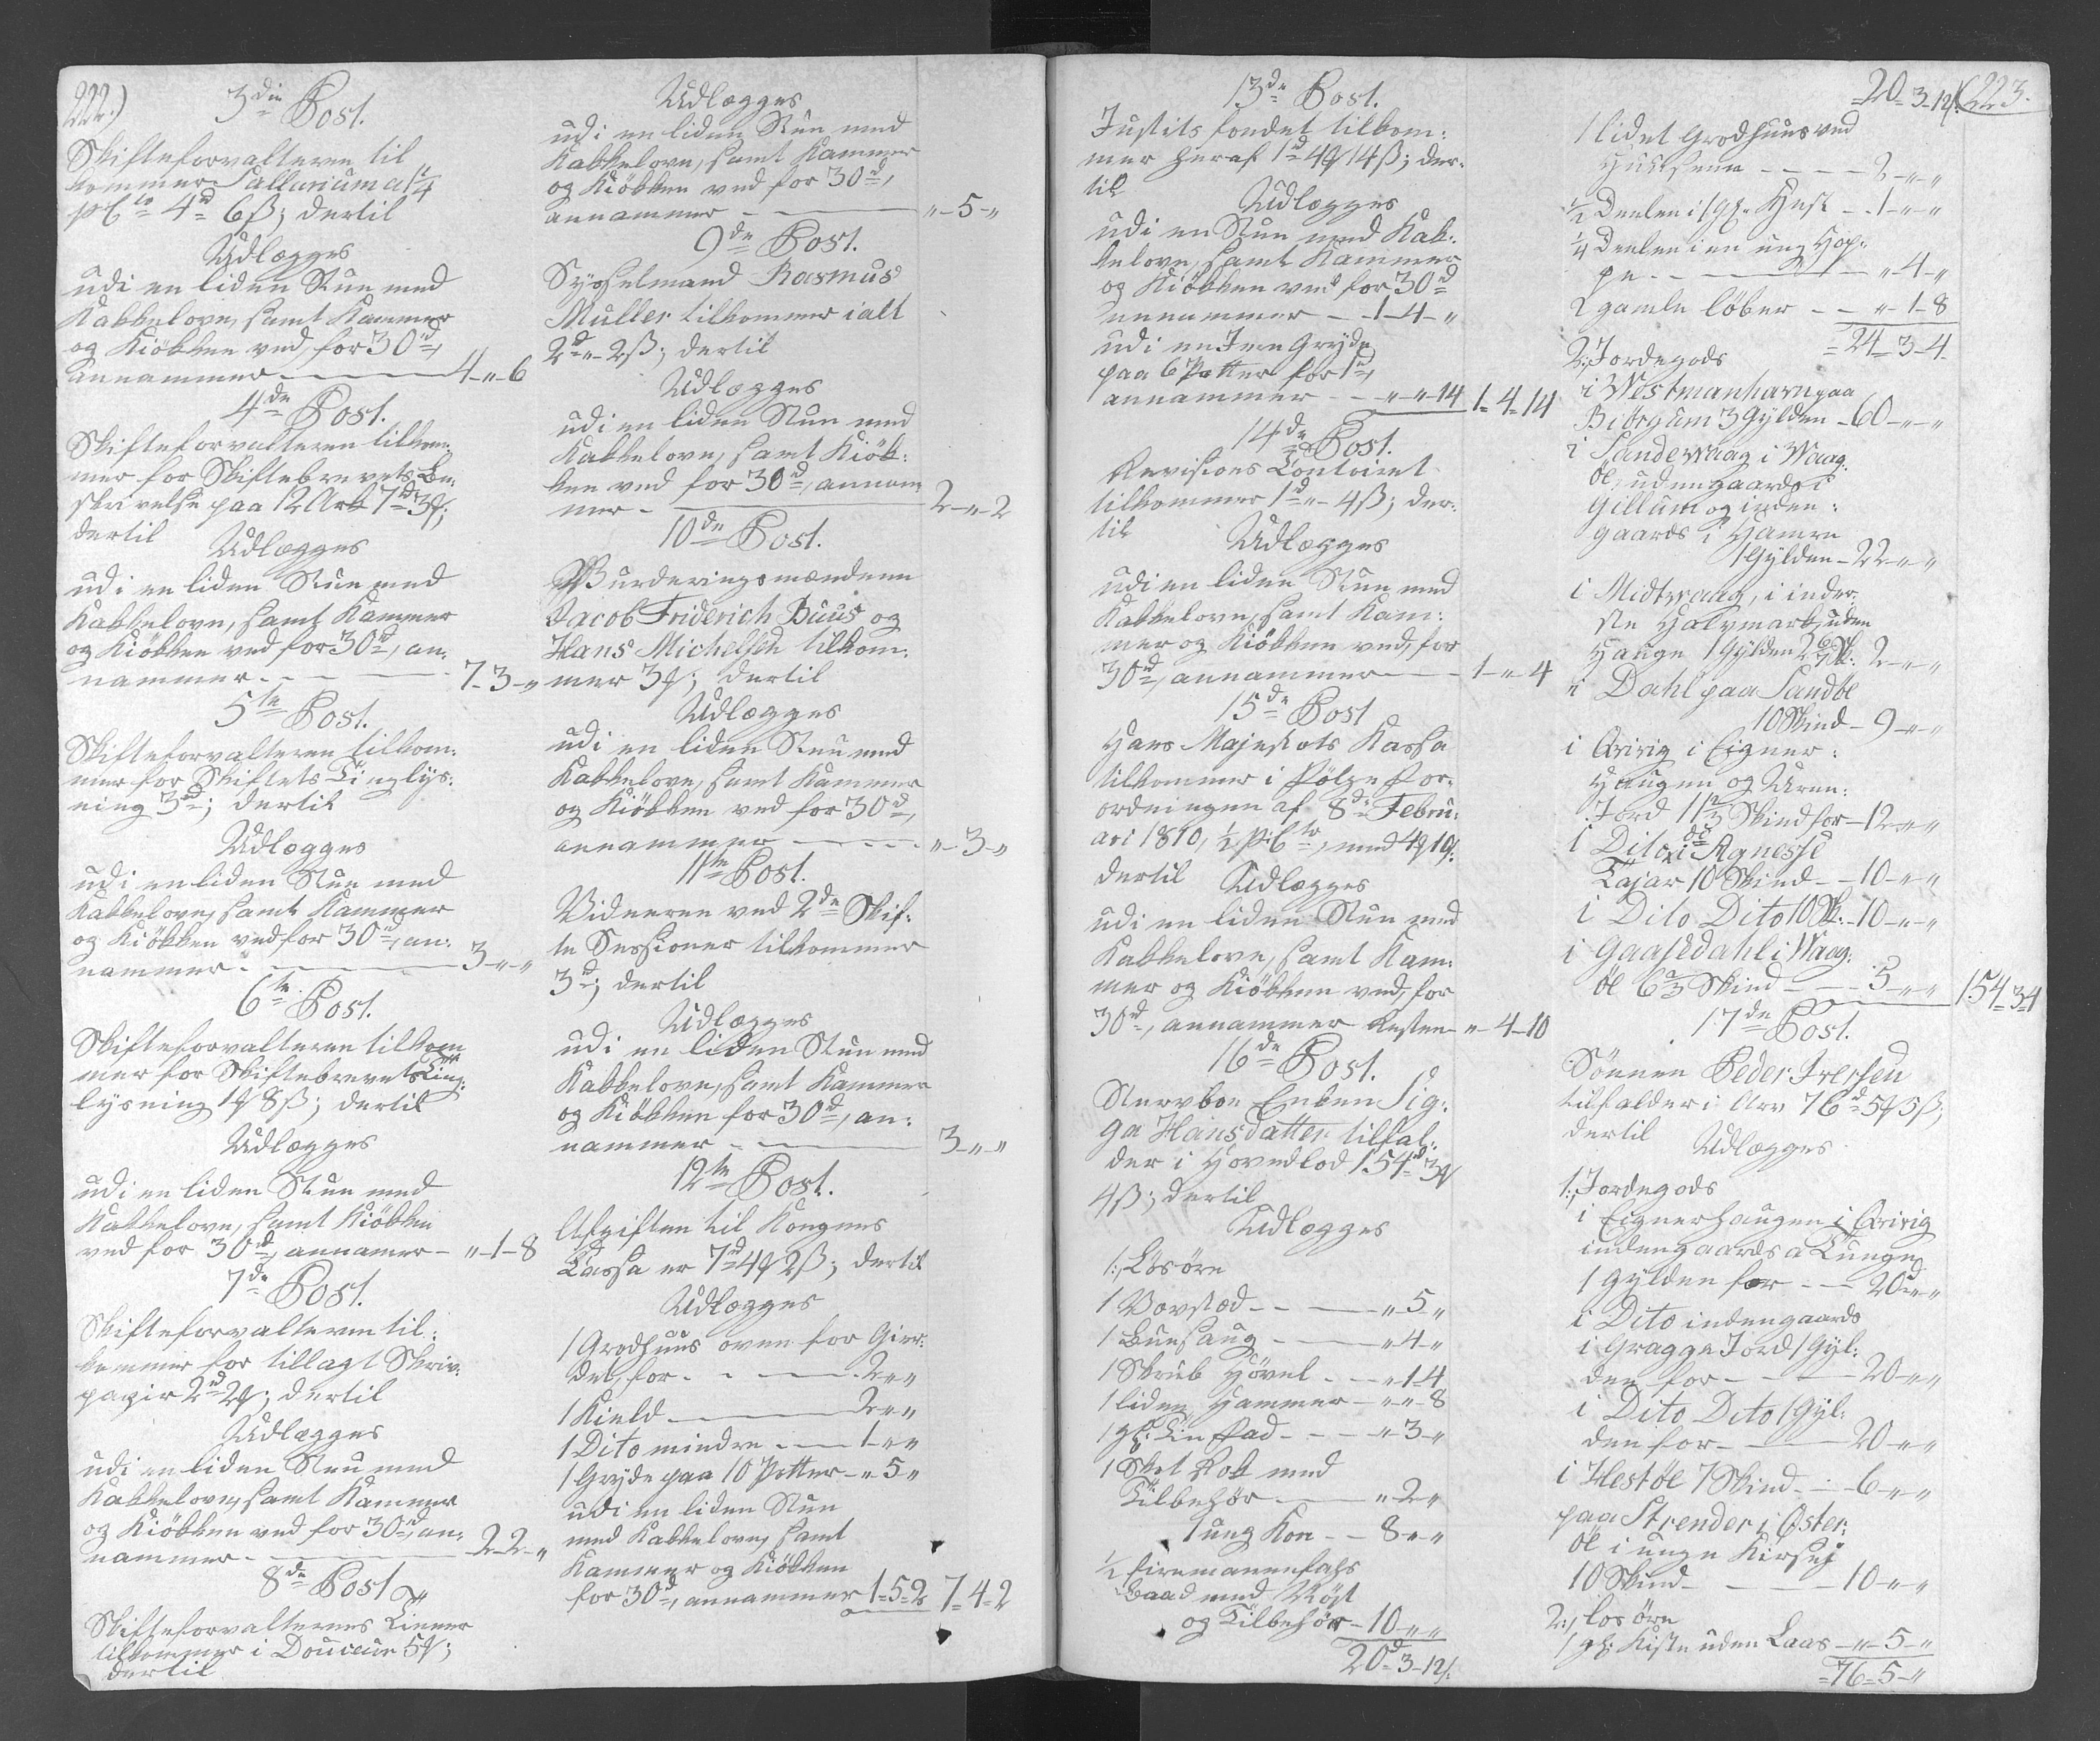 222.)
3die Post.
Skifteforvalteren til
kommer Sallarium a 1/4
pCto 4rd 6ß; dertil
Udlægges
udi en liden Stue med
Kakkelovn, samt Kammer
og Kiökken ved, for 30rd,
annammer 4-"-6
4de Post.
Skifteforvalteren tilkom:
mer for Skiftebrevets Be:
skrivelse paa 12 Ark 7rd 3ꝟ;
dertil
Udlægges
udi en liden Stue med
Kakkelovn, samt Kammer
og Kiökken ved for 30rd, an:
nammer 7-3-"
5te Post.
Skifteforvalteren tilkom:
mer for Skiftets Tinglys:
ning 3rd; dertil
Udlægges
udi en liden Stue med
Kakkelovn, samt Kammer
og Kiökken ved for 30rd, an:
nammer 3-"-"
6te Post.
Skifteforvalteren tilkom
mer for Skiftebrevets Ting:
lysning 1ꝟ 8ß; dertil
Udlægges
udi en liden Stue med
Kakkelovn, samt Kiökken
ved for 30rd, annamer "-1-8
7de Post.
Skifteforvalteren til:
kommer for tillagt Skriv:
papir 2rd 2ꝟ; dertil
Udlægges
udi en liden Stue med
Kakkelovn, samt Kammer
og Kiökken ved for 30rd, an:
nammer 2-2-"
8de Post
Skifteforvalterens Tiener
tilkommer i Douceur 5ꝟ;
dertil
Udlægges
udi en liden Stue med
Kakkelovn, samt Kammer
og Kiökken ved for 30rd,
annammer "-5-"
9de Post.
Sysselmand Rasmus
Muller tilkommer ialt
2rd "-2ß; dertil
Udlægges
udi en liden Stue med
Kakkelovn, samt Kiök:
ken ved for 30rd, annam
mer 2-"-2
10de Post.
Vurderingsmændene
Jacob Friderich Buus og
Hans Michelsen tilkom:
mer 3ꝟ; dertil
Udlægges
udi en liden Stue med
Kakkelovn, samt Kammer
og Kiökken ved for 30rd,
annammer "-3-"
11te Post.
Vidnerne ved 2de Skif:
te Sessioner tilkommer
3rd; dertil
Udlægges
udi en liden Stue med
Kakkelovn, samt Kammer
og Kiökken for 30rd, an:
nammer 3-"-"
12te Post.
Afgiften til Kongens
Cassa er 7rd 4ꝟ 2ß; dertil
Udlægges
1 Grodhuus oven for Gier:
det, for 2-"-"
1 Kield 2-"-"
1 Dito mindre 1-"-"
1 Gryde paa 10 Potter "-5-"
udi en liden Stue
med Kakkelovn, samt
Kammer og Kiökken
for 30rd, annammer 1-5-2 7-4-2
13de Post.
Justits fondet tilkom:
mer heraf 1rd 4ꝟ 14ß; der:
til
Udlægges
udi en Stue med Kak:
kelovn, samt Kammer
og Kiökken ved for 30rd
annammer 1-4-"
udi en Jern Gryde
paa 6 Potter for 1rd,
annammer "-"-14 1-4-14
14de Post.
Revisions Contoiret
tilkommer 1rd "-4ß; der:
til
Udlægges
udi en liden Stue med
Kakkelovn, samt Kam:
mer og Kiökken ved, for
30rd, annammer 1-"-4
15de Post
Hans Majestæts Kassa
tilkommer i Følge For:
ordningen af 8de Febru:
ari 1810, 1/2 pCto, med 4ꝟ 10ß.
dertil
Udlægges
udi en liden Stue med
Kakkelovn, samt Kam:
mer og Kiökken ved, for
30rd, annammer Resten "-4-10
16de Post.
Stervboe Enken Sig:
ga Hansdatter tilfal:
der i Hovedlod 154rd 3ꝟ
4ß; dertil
Udlægges
1:, Lösöre
1 Vovstæd "-5-"
1 Buesaug "-4-"
1 Skrub Hövel "-1-4
1 liden Hammer "-"-8
1 gl: Tin fad "-3-"
1 Skot Rok med
Tilbehör "-2-"
1 ung Koe 8-"-"
1/2 firemannenfahs
Baad med Röst
og Tilbehör 10-"-"
20rd-3-12ß.
(223.
20-3-12ß.
1 lidet Grodhuus ved
2-"-"
1/2 Deelen i 1 gl. Hest 1-"-"
1/4 Deelen i en ung Hop:
pe "-4-"
2 gamle löber "-1-8
24-3-4.
2:, Jordegods
i Westmanhavn paa
Bitrgum 3 Gylden 60-"-"
i Sandewaag i Waag:
öe, udengaards i
Gillum og inden:
gaards i Hamre
1 Gylden 22-"-"
i Midtwaag, i inder:
ste Halvmark, uden
Hauge 1 Gylden 2-"-"
i Dahl paa Sandöe
10 Skind 9-"-"
i Qvivig i Eigner:
Haugen og Uren:
Jord 11 2/3 Skind for 12-"-"
i Dito i Agnesse
Tajar 10 Skind 10-"-"
i Dito Dito 10 Sk: 10-"-"
i Gaasedahl i Waag:
öe 6 2/3 Skind 5-"-" 154-3-4
17de Post.
Sönnen Peder Iversen
tilfalder i Arv 76rd 5ꝟ 5ß;
dertil
Udlægges
1:, Jordegods
i Eignerhaugen i Qvivig
indengaards a Tunge
1 Gylden for 20rd-"-"
i Dito indengaards
i Gragga Jord 1 Gyl:
den for 20-"-"
i Dito Dito 1 Gyl:
den for 20-"-"
i Hestöe 7 Skind 6-"-"
paa Strender i Öster:
öe i unge Kirsej
10 Skind 10-"-"
2:, losöre
1 gl: Kiste uden Laas "-5-"
76-5-"